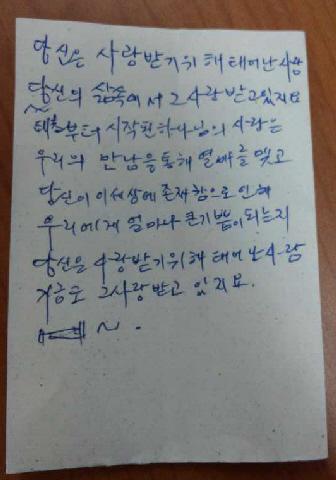 당신은 사랑받기위해 태어난 사람
당신의 삶속에서 그사랑 받고있지요
태초부터 시작된하나님의 사랑은
우리의 만남을통해 열매를 맺고
당신이 이세상에 존재함으로 인해
우리에게 얼마나 큰기쁨이 되는지
당신은 사랑받기위해 태어난사람
지금도 그사랑받고 있지요.
~ .